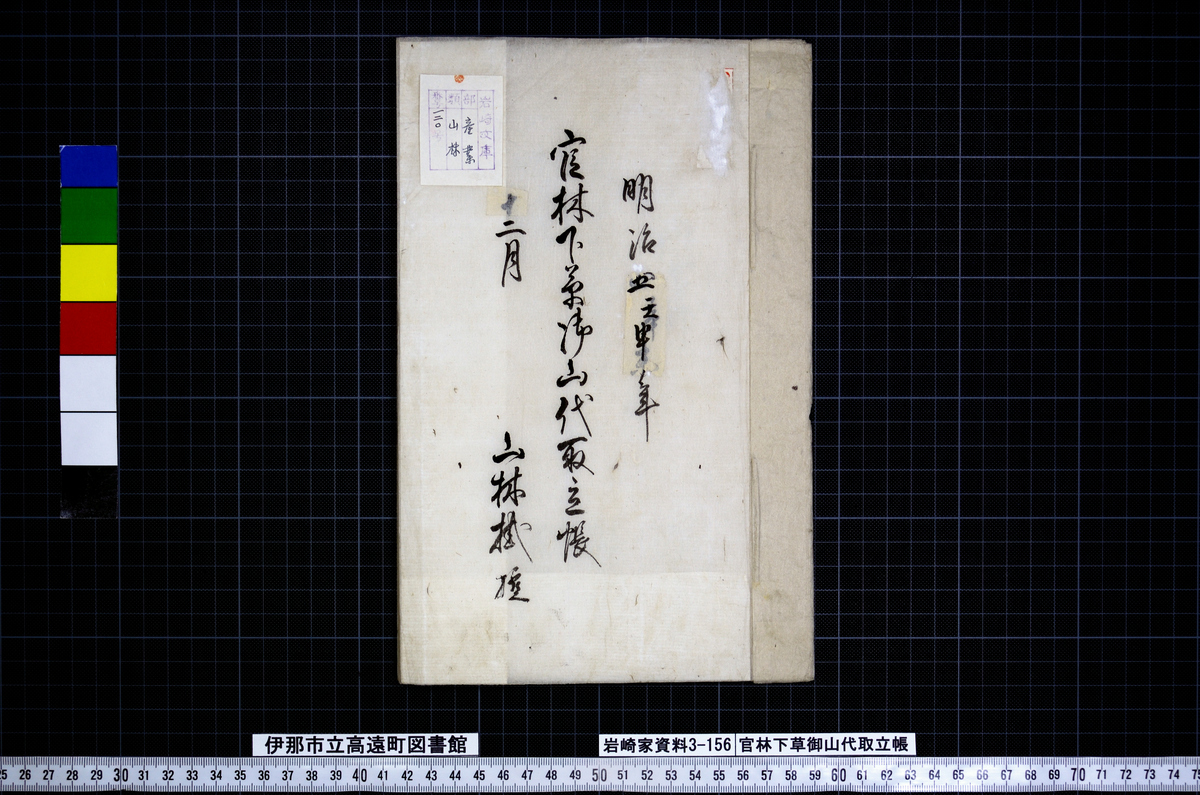 明治四壬申年
官林下草御山代取立帳
十二月
山林掛
岩崎文庫
部 産業
類 山林
一二〇
伊那市立高遠町図書館
岩崎家資料3-156
官林下草御山代取立帳
25 26 27 28 29 30 31 32 33 34 35 36 37 38 39 40 41 42 43 44 45 46 47 48 49 50 51 52 53 54 55 56 57 58 59 60 61 62 63 64 65 66 67 68 69 70 71 72 73 74 75